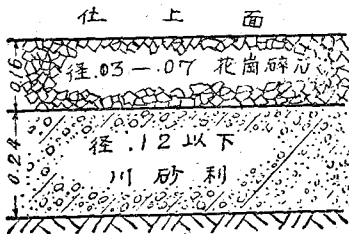 仕上面
0.16
径.03—.07 花崗碎石
0.24
径.12以下
川砂利